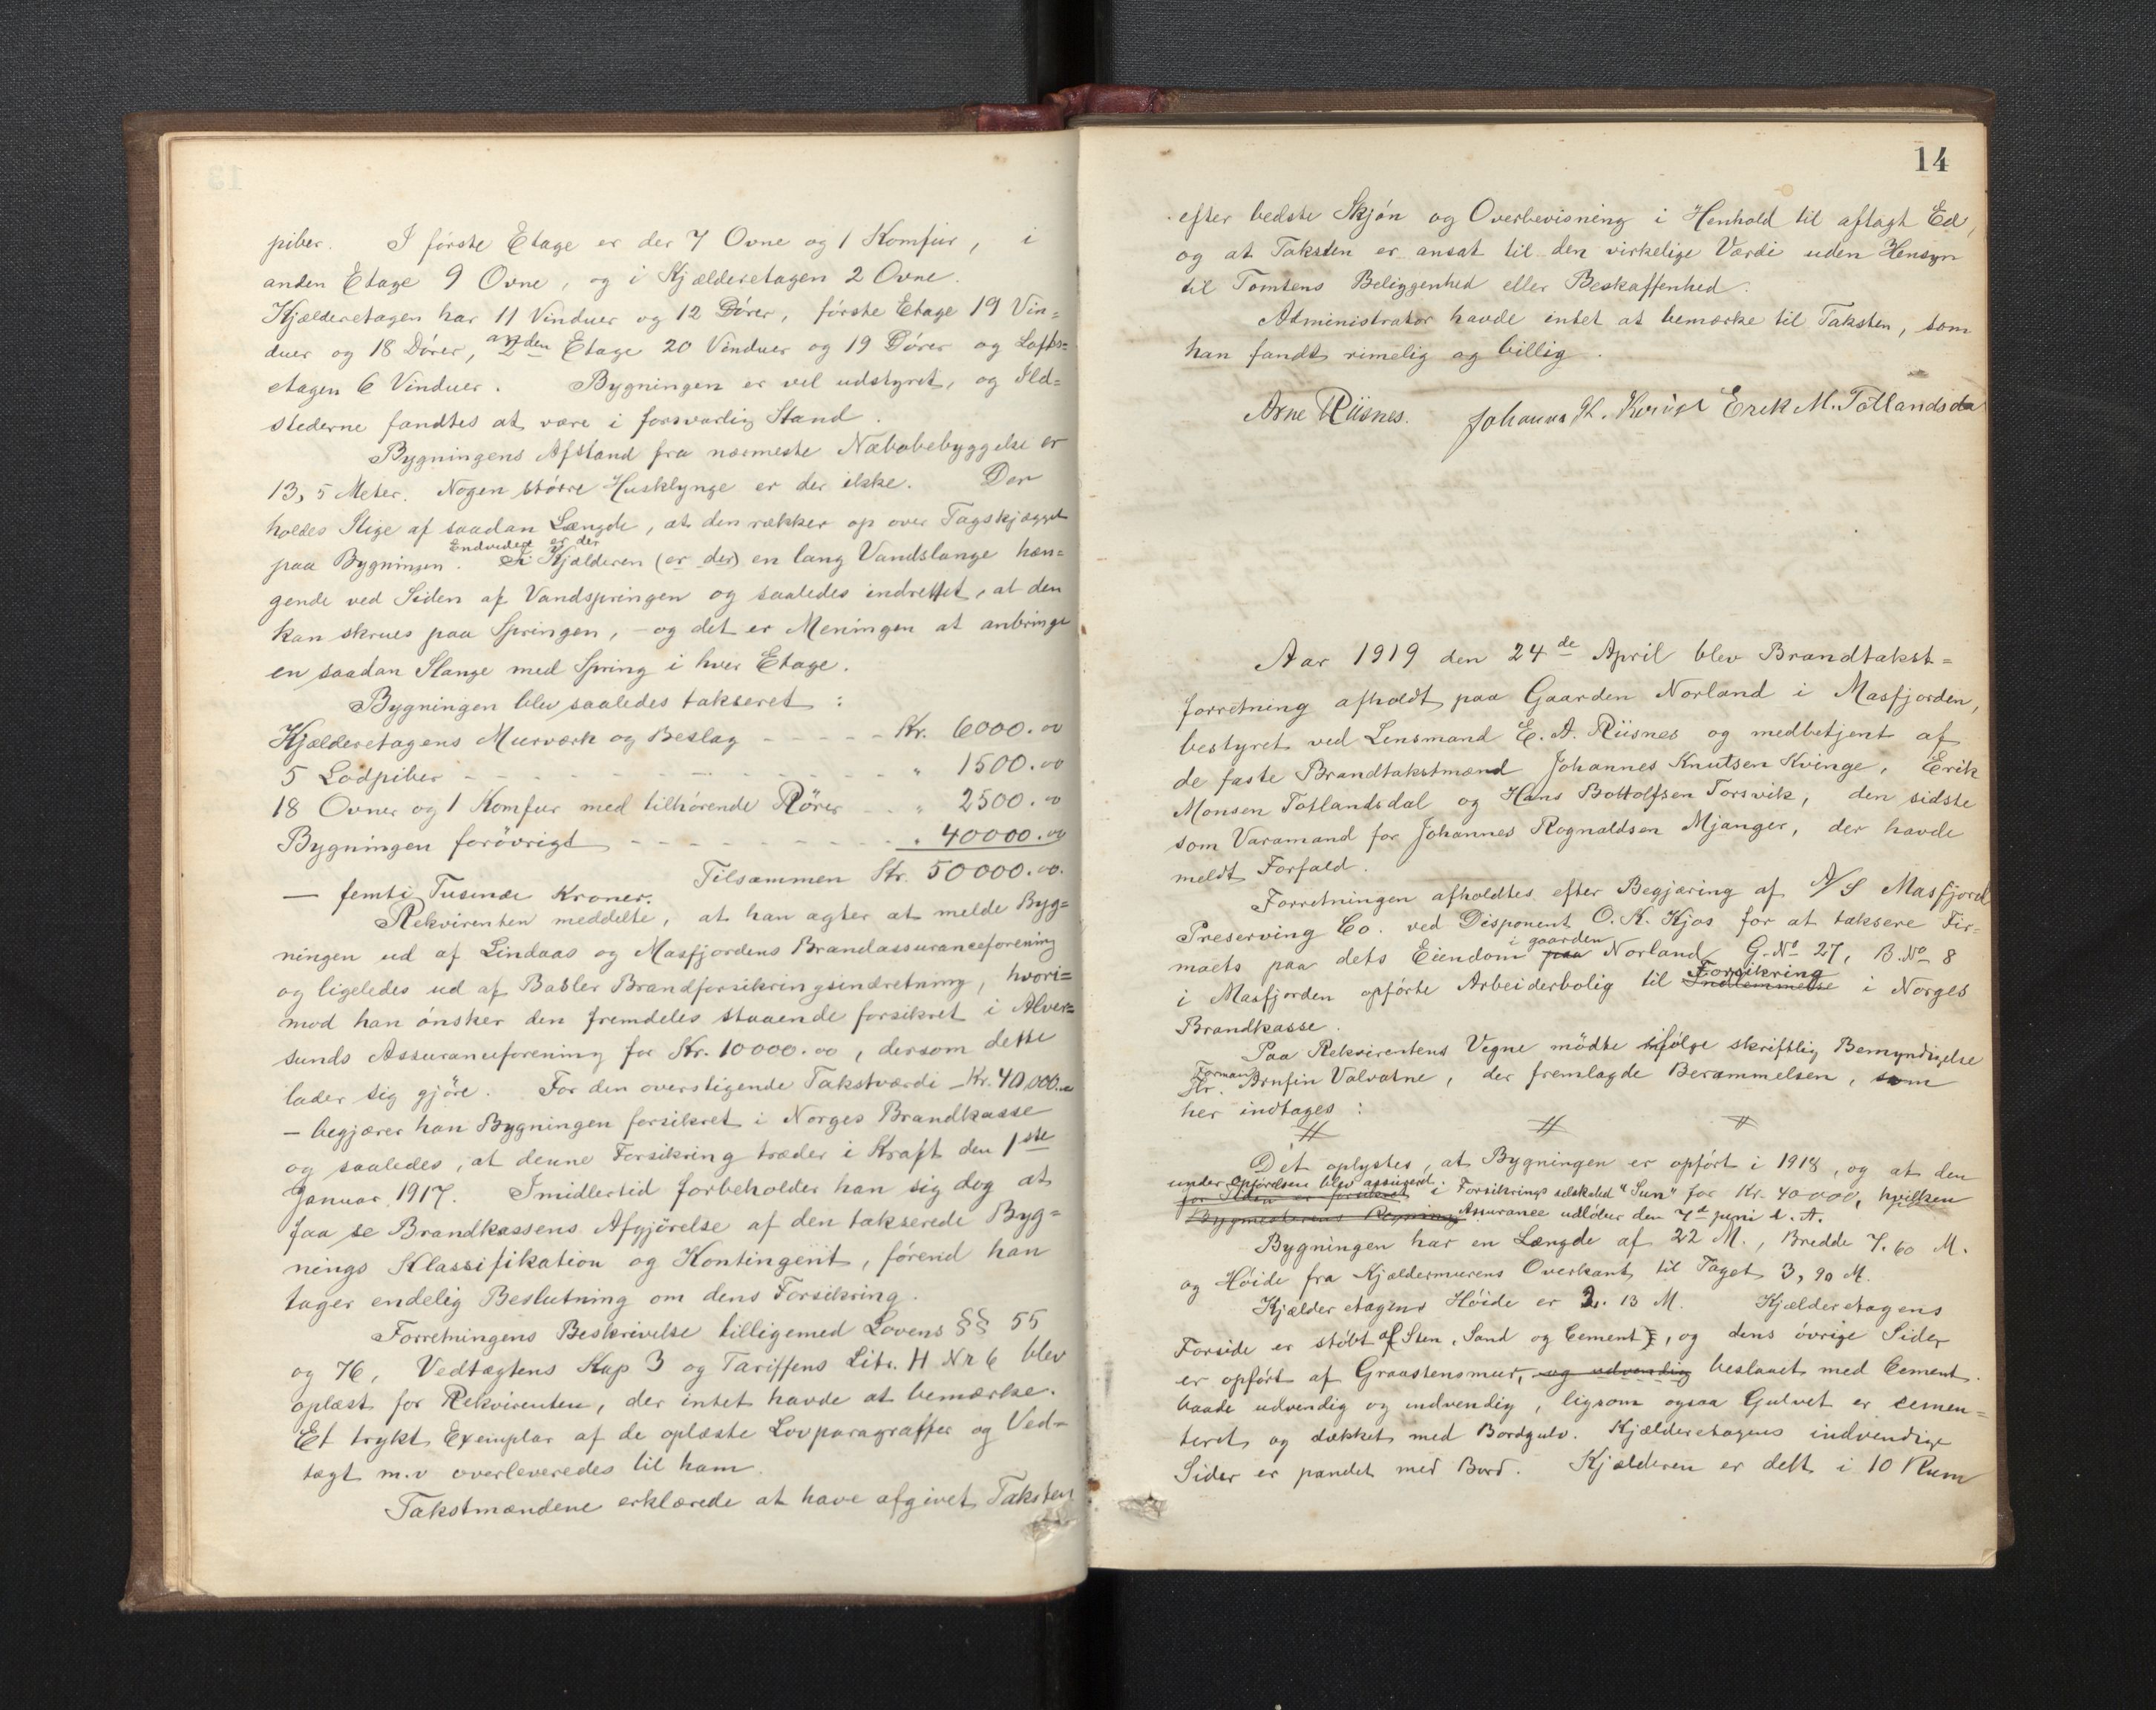 piber. I første Etage er der 7 Ovne og 1 Komfur, i
anden Etage 9 Ovne, og i Kjælderetagen 2 Ovne.
Kjælderetagen har 11 Vinduer og 12 Dører, første Etage 19 Vin=
duer og 18 Dører, anden Etage 20 Vinduer og 19 Dører og Lofts=
etagen 6 Vinduer. Bygningen er vel udstyret, og Ild=
stederne fandtes at være i forsvarlig Stand.
Bygningens Afstand fra nærmeste Nabobebyggelse er
13,5 Meter. Nogen større Husklynge er der ikke. Der
holdes Stige af saadan Længde, at den rækker op over Tagskjægget
Endvidere er der
paa Bygningen. I Kjælderen (er der) en lang Vandslange hæn=
gende ved Siden af Vandspringen og saaledes indrettet, at den
kan skrues paa Springen, - og det er Meningen at anbringe
en saadan Slange med Spring i hver Etage.
Bygningen blev saaledes takseret:
Kjælderetagens Murværk og Beslag - - - - - Kr. 6000.00
5 Lodpiber - - - - - - - - - - - " 1500.00
18 Ovner og 1 Komfur med tilhørende Rører - - " 2500.00
Bygningen forøvrigt - - - - - - - - - " 40000.00
Tilsammen Kr. 50000.00.
— femti Tusinde Kroner.
Rekvirenten meddelte, at han agter at melde Byg=
ningen ud af Lindaas og Masfjordens Brandassuranceforening
og ligeledes ud af Babler Brandforsikringsindretning, hvori=
mod han ønsker den fremdeles staaende forsikret i Alver=
sunds Assuranceforening for Kr. 10000.00, dersom dette
lader sig gjøre. For den overstigende Takstværdi - Kr. 40,000.00
— begjærer han Bygningen forsikret i Norges Brandkasse
og saaledes, at denne Forsikring træder i Kraft den 1ste
Januar 1917. Imidlertid forbeholder han sig dog at
faa se Brandkassens Afgjørelse af den takserede Byg=
nings Klassifikation og Kontingent, førend han
tager endelig Beslutning om dens Forsikring.
Forretningens Beskrivelse tilligemed Lovens §§ 55
og 76, Vedtægtens Kap 3 og Tariffens Litr. H Nr 6 blev
oplæst for Rekvirenten, der intet havde at bemærke.
Et trykt Exemplar af de oplæste Lovparagraffer og Ved=
tægt m.v overleveredes til ham.
Takstmændene erklærede at have afgivet Taksten
14
efter bedste Skjøn og Overbevisning i Henhold til aflagt Ed,
og at Taksten er ansat til den virkelige Værdi uden Hensyn
til Tomtens Beliggenhed eller Beskaffenhed.
Administrator havde intet at bemærke til Taksten, som
han fandt rimelig og billig.
Arne Riisnes. Johannes K. Kvinge Erik M. Totlandsdal
Aar 1919 den 24de April blev Brandtakst=
forretning afholdt paa Gaarden Norland i Masfjorden,
bestyret ved Lensmand E. A. Riisnes og medbetjent af
de faste Brandtakstmænd Johannes Knutsen Kvinge, Erik
Monsen Totlandsdal og Hans Bottolfsen Torsvik, den sidste
som Varamand for Johannes Rognaldsen Mjanger, der havde
meldt Forfald.
Forretningen afholdtes efter Begjæring af A/S Masfjord
Preserving Co. ved Disponent O. K. Kjos for at taksere Fir=
i gaarden
maets paa dets Eiendom paa Norland G.No 27, B.No 8
Forsikring
i Masfjorden opførte Arbeiderbolig til Indlemmelse i Norges
Brandkasse.
Paa Rekvirentens Vegne mødte ifølge skriftlig Bemyndigelse
Formand
Hr. Brnfin Valvatne, der fremlagde Berammelsen, som
her indtages:
# # #
Det oplystes, at Bygningen er opført i 1918, og at den
under opførelsen blev assureret
for Tiden er forsikret i Forsikringsselskabet "Sun" for Kr. 40000, hvilken
Bygmesterens Regning Assurance udløber den 7d juni d. A.
Bygningen har en Længde af 22 M., Bredde 7.60 M.
og Høide fra Kjældermurens Overkant til Taget 3,90 M.
Kjælder etagens Høide er 2.13 M. Kjælderetagens
Forside er støbt af Sten, Sand og Cement, og dens øvrige Sider
er opført af Graastensmur, og udvendig beslaaet med Cement
baade udvendig og indvendig, ligsom ogsaa Gulvet er cemen=
teret og dækket med Bordgulv. Kjælderetagens indvendige
Sider er panelet med Bord. Kjælderen er delt i 10 Rum